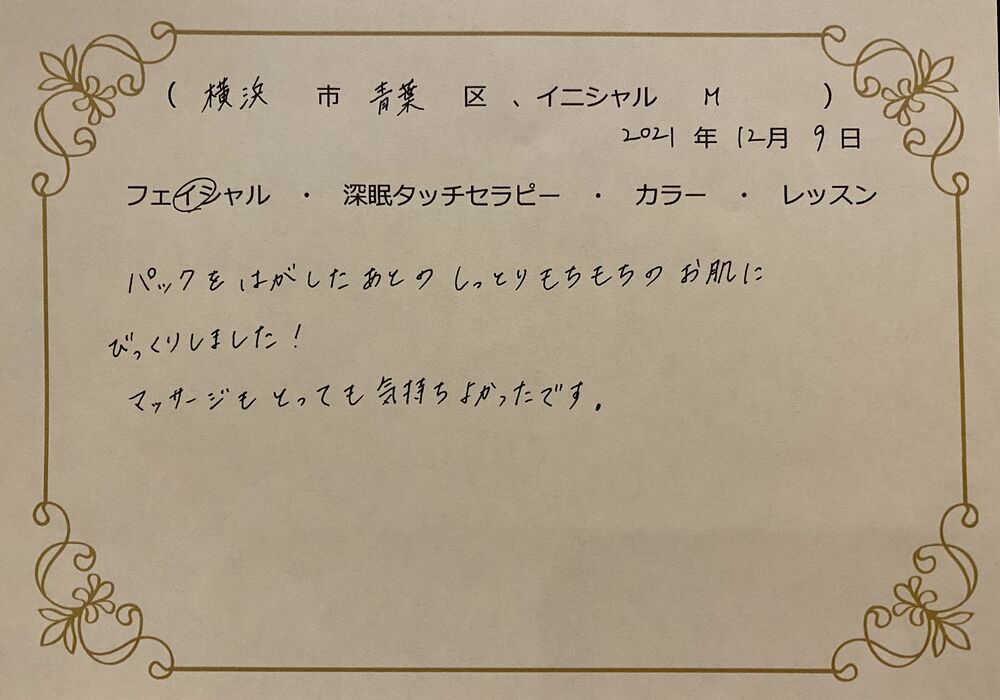 ( 横浜 市 青葉 区 、イニシャル M )
2021 年 12月 9 日
フェイシャル ・ 深眠タッチセラピー ・ カラー ・ レッスン
パックをはがしたあとのしっとりもちもちのお肌に
びっくりしました!
マッサージもとっても気持ちよかったです。